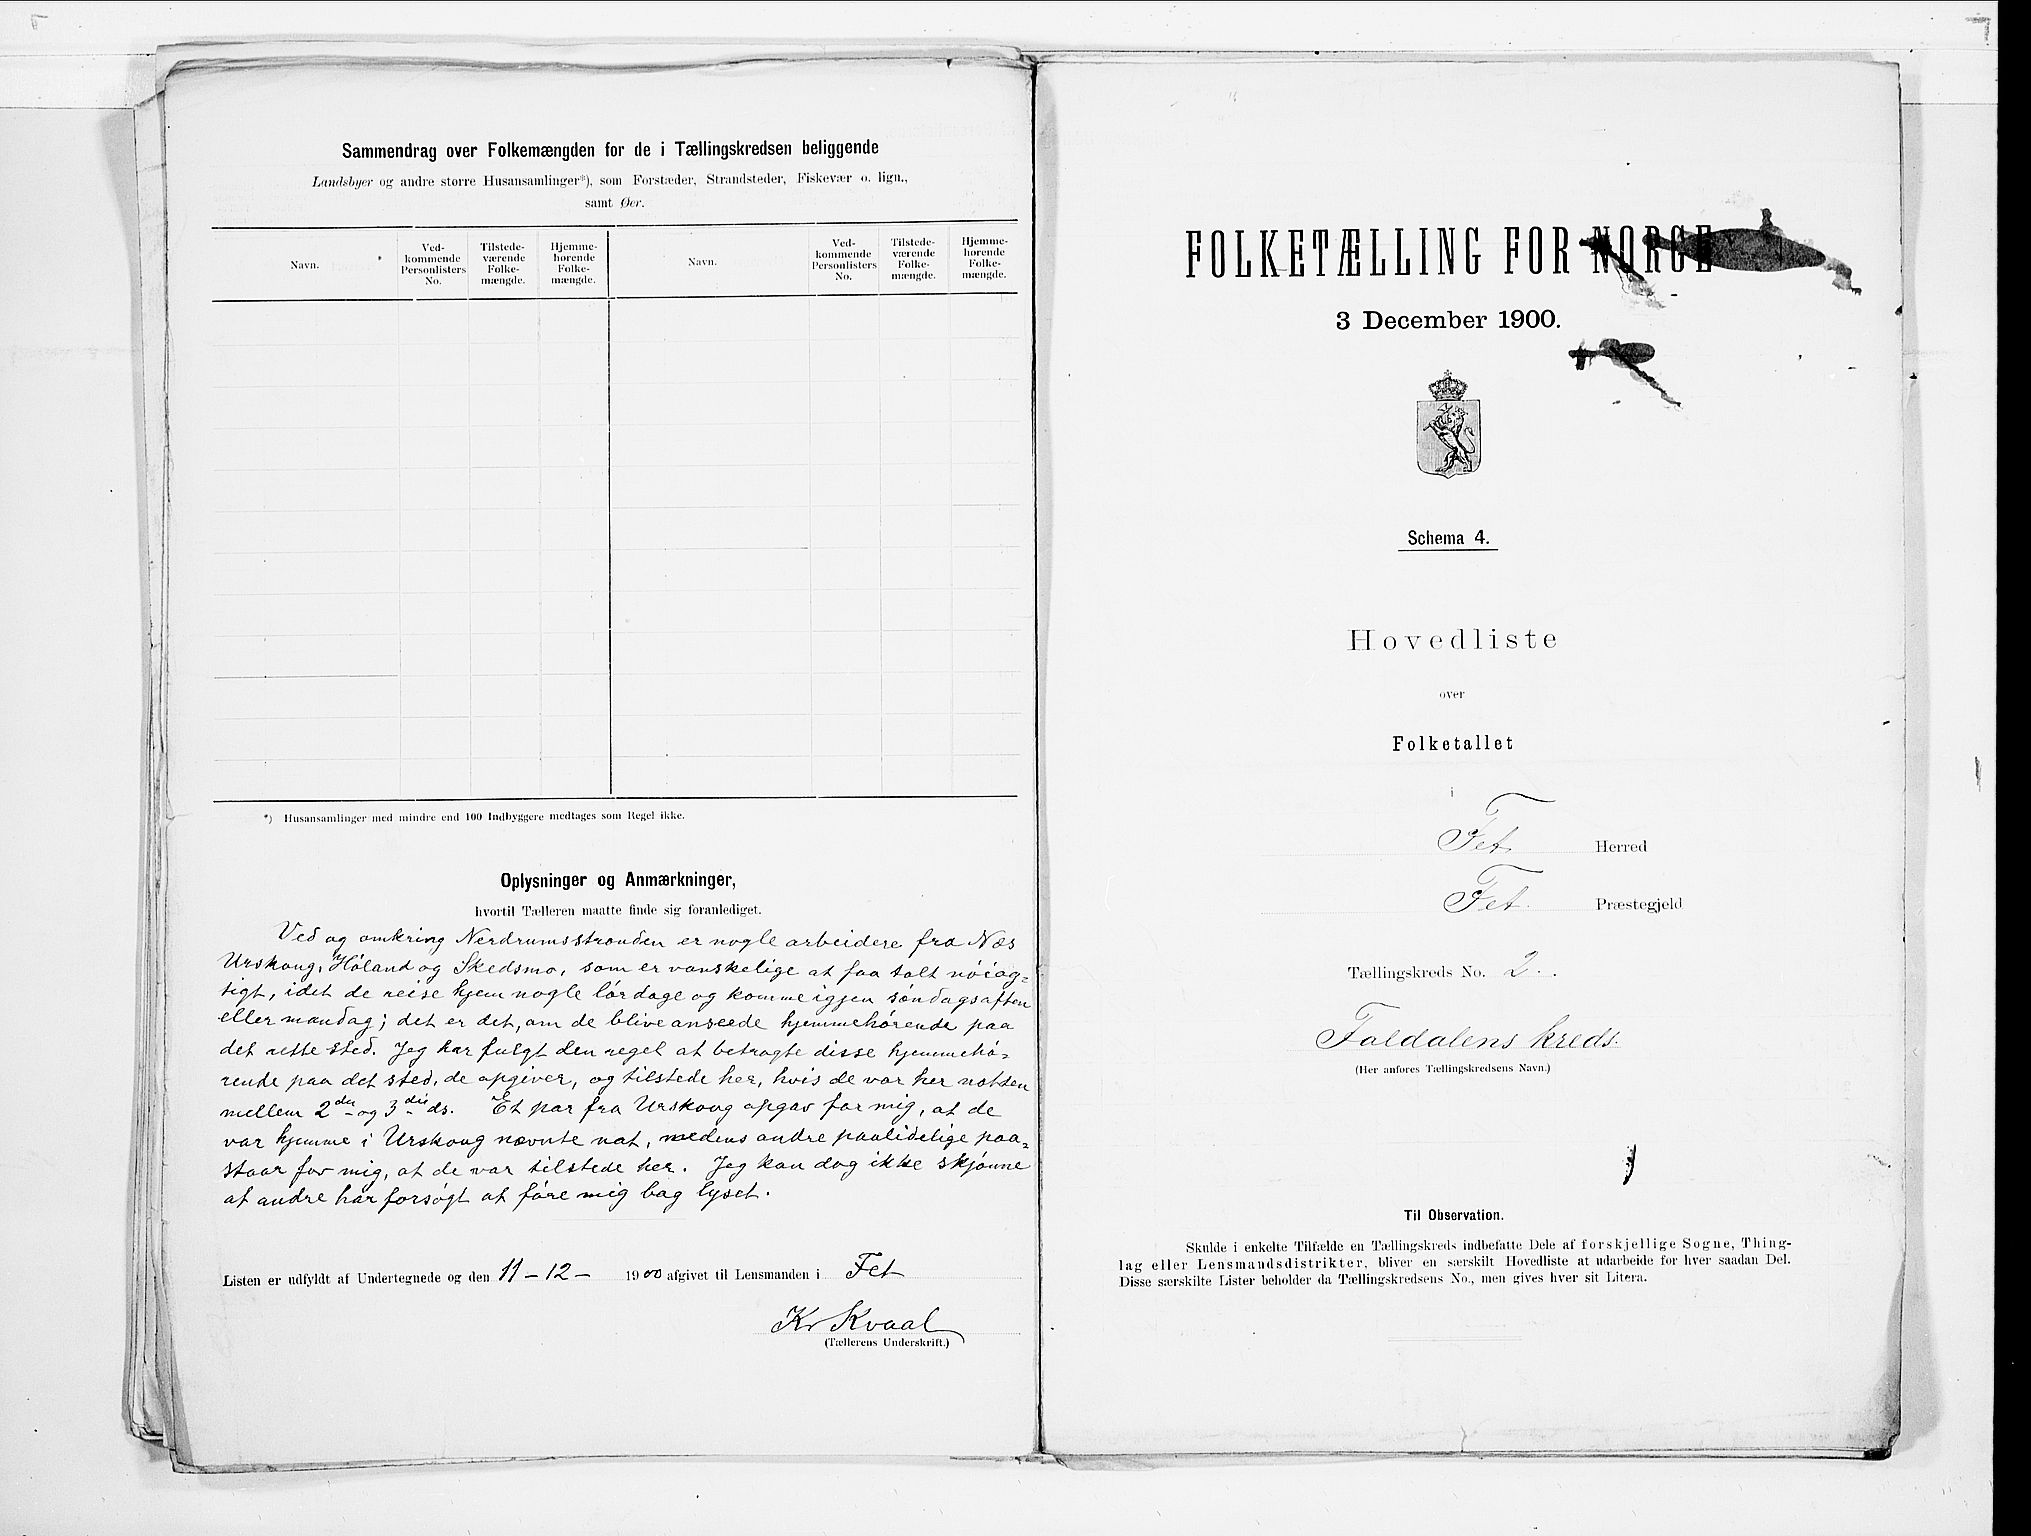 Sammendrag over Folkemængden for de i Tællingskredsen beliggende
Landsbyer og andre større Husansamlinger*), som Forstæder, Strandsteder, Fiskevær o. lign.,
samt Øer.
Navn.
Ved-
kommende
Personlisters
No.
Tilstede-
værende
Folke-
mængde.
Hjemme-
hørende
Folke-
mængde.
Navn.
Ved-
kommende
Personlisters
No.
Tilstede-
værende
Folke-
mængde.
Hjemme-
hørende
Folke-
mængde.
*) Husansamlinger med mindre end 100 Indbyggere medtages som Regel ikke.
Oplysninger og Anmærkninger,
hvortil Tælleren maatte finde sig foranlediget.
Ved og omkring Nerdrumsstranden er nogle arbeidere fra Næs
Urskoug, Høland og Skedsmo, som er vanskelige at faa talt nöiag-
tigt, idet de reise hjem nogle lördage og komme igjen söndagsaften
eller mandag; det er det, om de blive anseede hjemmehörende paa
det rette sted. Jeg har fulgt den regel at betragte disse hjemmehö-
rende paa det sted, de opgiver, og tilstede her, hvis de var her natten
mellem 2den og 3die ds. Et par fra Urskoug opgav for mig, at de
var hjemme i Urskoug nævnte nat, medens andre paalidelige paa-
staar for mig, at de var tilstede her. Jeg kan dog ikke skjönne
at andre har forsögt at före mig bag lyset.
Listen er udfyldt af Undertegnede og den 11-12- 1900 afgivet til Lensmanden i Fet
Kr Kvaal
(Tællerens Underskrift.)
FOLKETÆLLING FOR NORGE
3 December 1900.
Schema 4.
Hovedliste
over
Folketallet
i
Fet Herred
Fet. Præstegjeld
Tællingskreds No. 2.
Faldalens kreds.
(Her anføres Tællingskredsens Navn.)
Til Observation.
Skulde i enkelte Tilfælde en Tællingskreds indbefatte Dele af forskjellige Sogne, Thing-
lag eller Lensmandsdistrikter, bliver en særskilt Hovedliste at udarbeide for hver saadan Del.
Disse særskilte Lister beholder da Tællingskredsens No., men gives hver sit Litera.